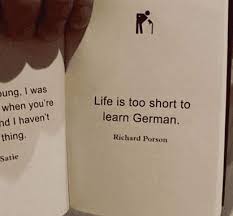 oung, I was
when you're
nd I haven't
thing.
Satie
Life is too short to
learn German.
Richard Porson